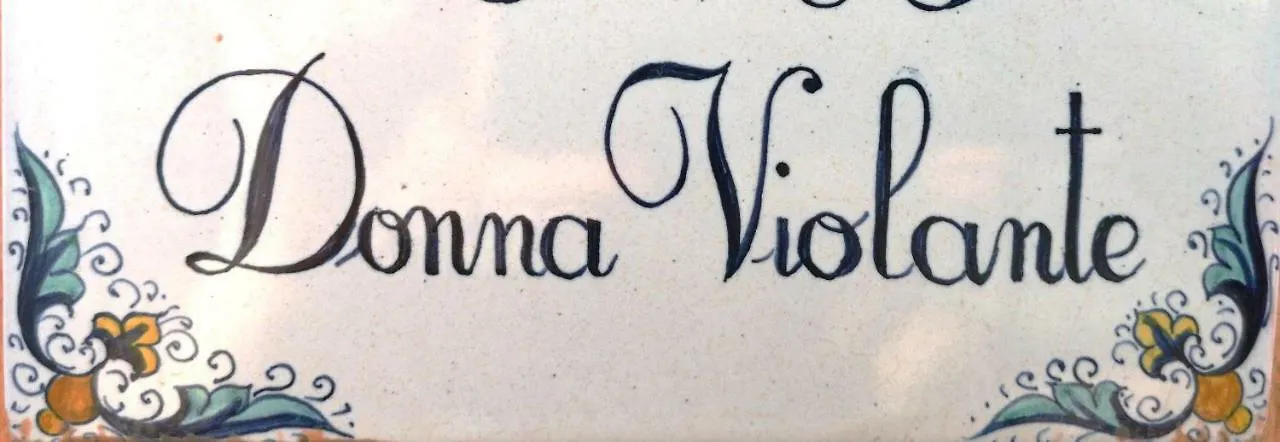 Donna Violante